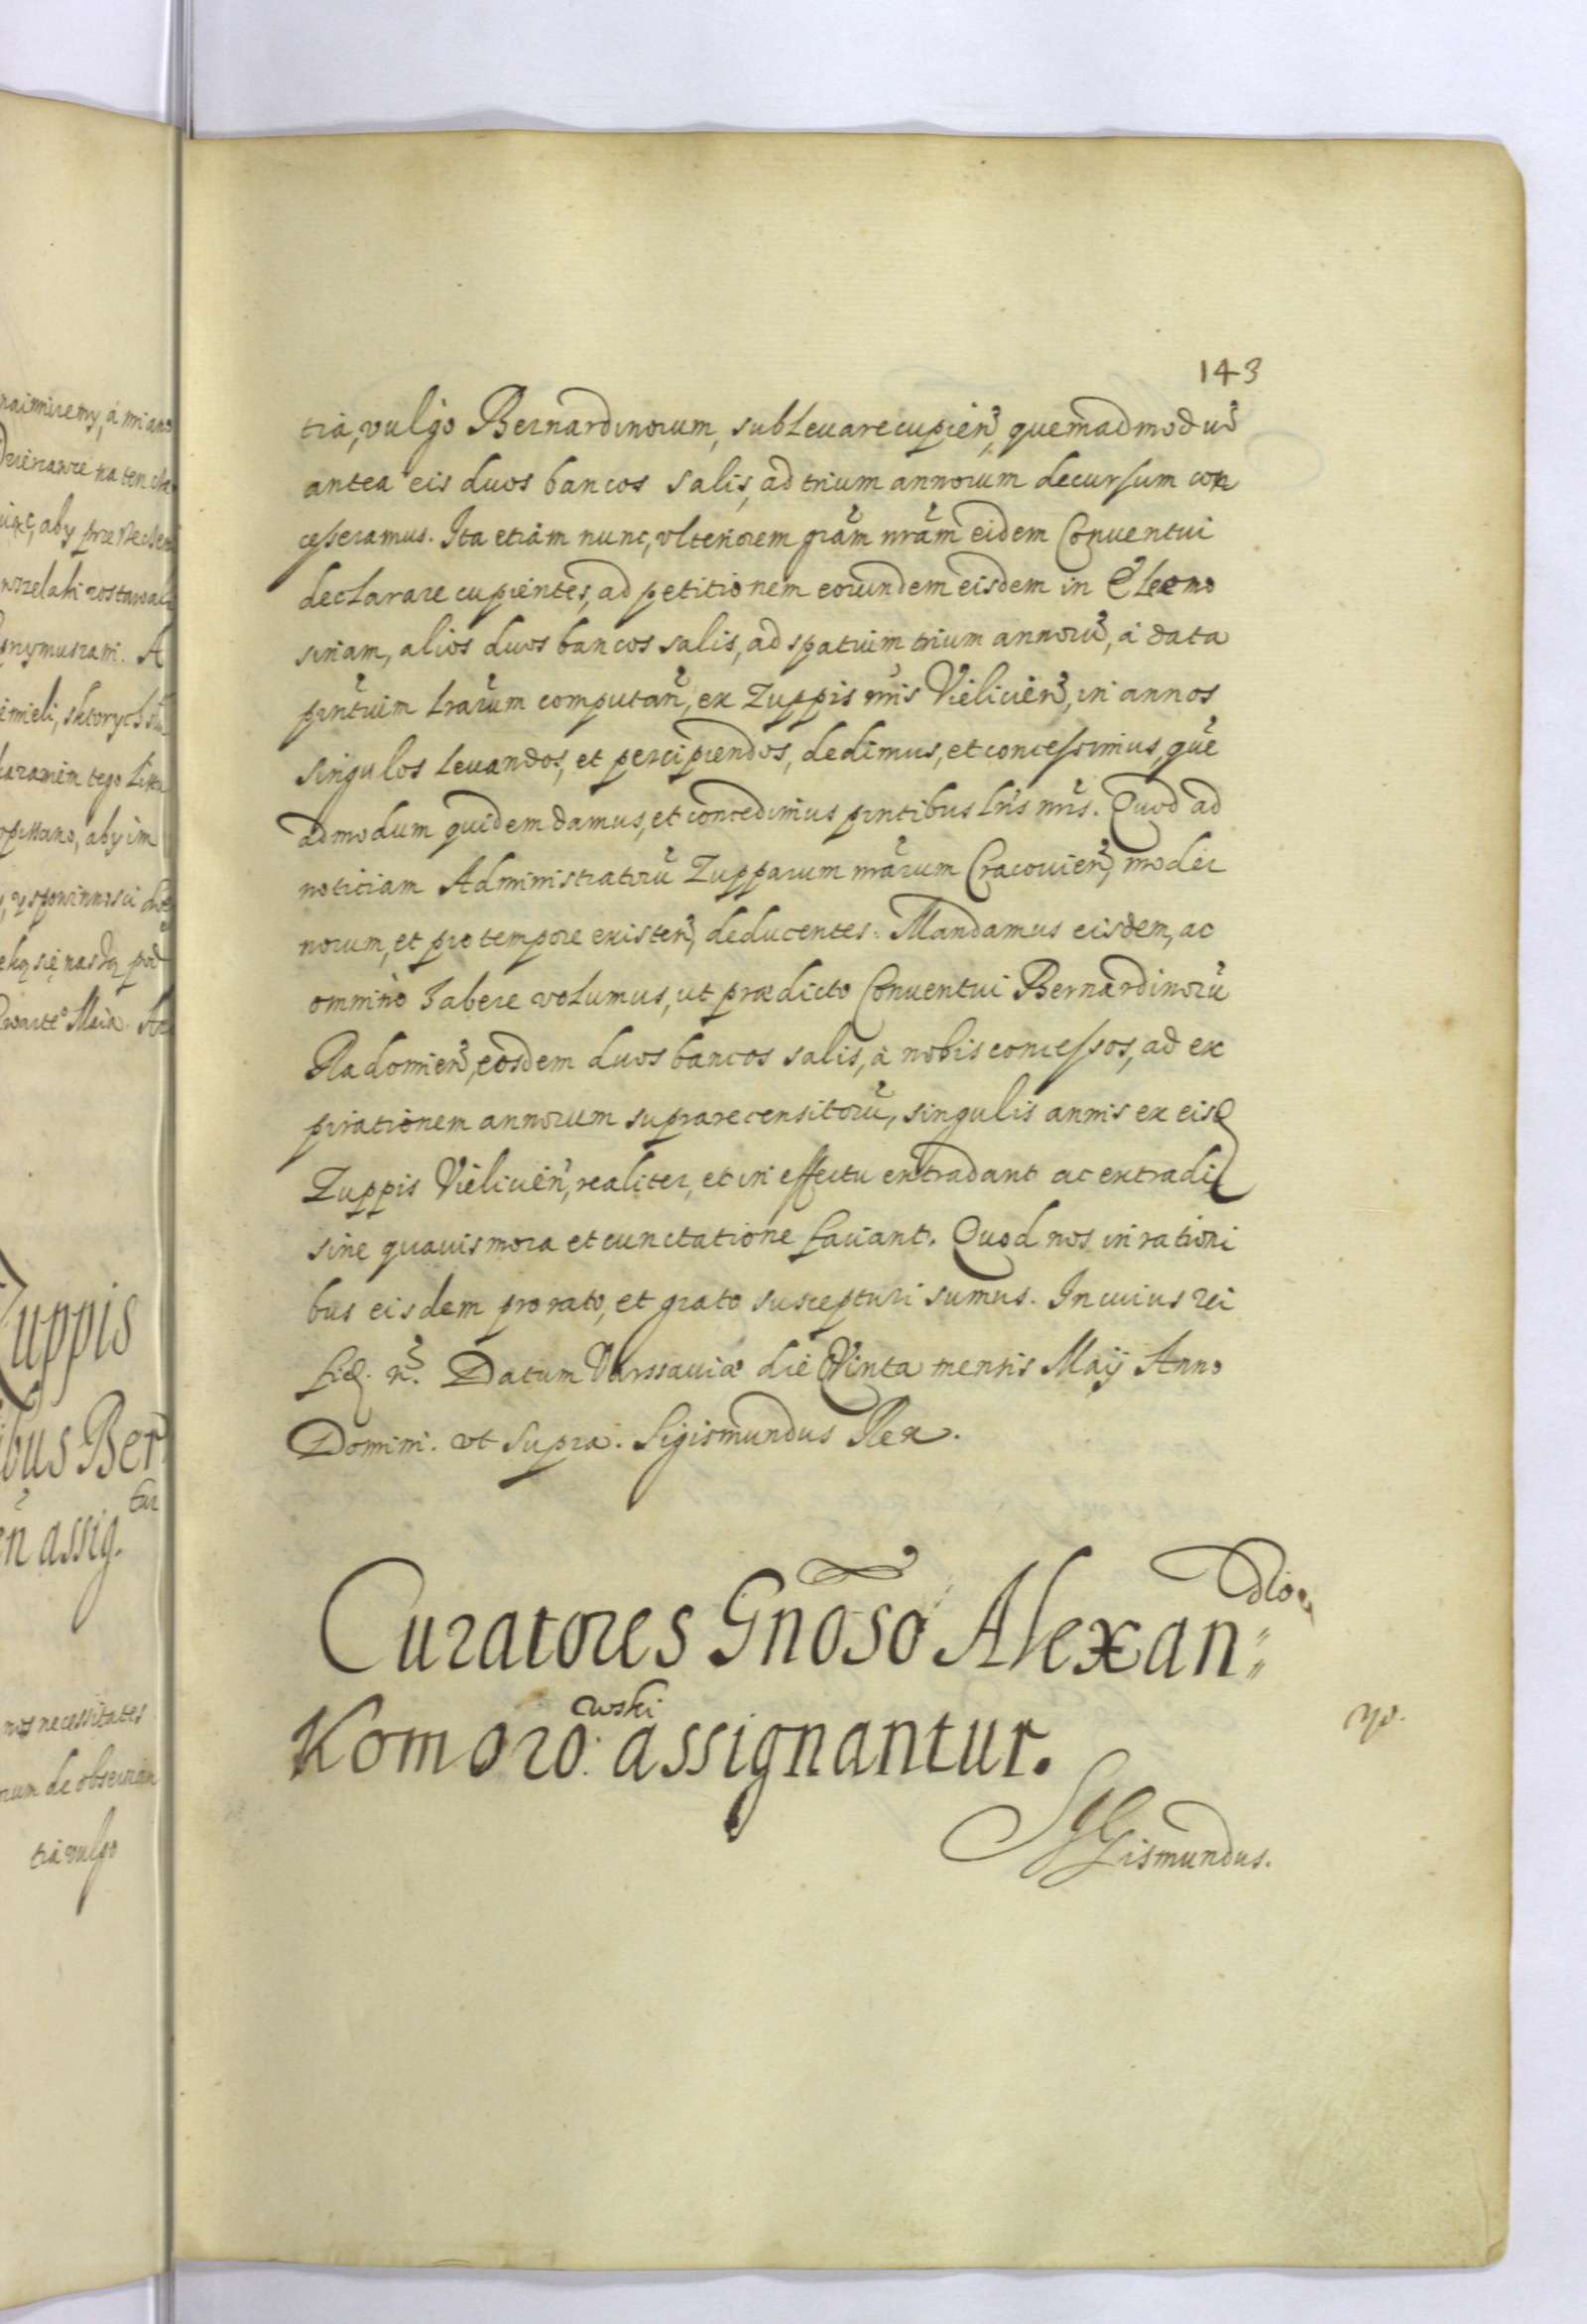 143
tia, vulgo Bernardinorum, sublevare cupień, quemadmodū
antea eis duos bancos salis, ad trium annorum decursum con
cesseramus. Ita etiam nunc, vlteriorem grãm nrãm eidem Conventui
declarare cupientes, ad petitionem eorundem eisdem in Eleemo
sinam, alios duos bancos salis, ad spatium trium annorū, à data
pñtium lrarum computań, ex Zuppis nr̃is Vielicień, in annos
singulos levandos, et percipiendos, dedimus, et concessimus, quē
admodum quidem damus, et concedimus pñtibus lr̃is nr̃is. Quod ad
noticiam Administratorū Zupparum nrãrum Cracovień, moder
norum, et pro tempore existeń, deducentes. Mandamus eisdem, ac
omnino habere volumus, ut prædicto Conventui Bernardinorū
Radomień, eosdem duos bancos salis, à nobis concessos, ad ex
pirationem annorum suprarecensitorū, singulis annis ex eisd
Zuppis Vielicień, realiter, et in effectu extradant ac extradi
sine quavis mora et cunctatione faciant. Quod nos in rationi
bus eisdem pro rato, et grato suscepturi sumus. In cuius rei
fid. n. Datum Varssaviæ die Qvinta mensis Maij Anno
Domini. vt supra. Sigismundus Rex.
Curatores Gñoso Alexan:dro
Komoro:wski assignantur.
Sigismundus.
naimniemy, á miano
wszelaki zostawal
imieli, ktorych
opissano, aby im
y spowinnosci
Zuppis
ibus Ber
ń assig.tur
nos necessitates
rum de observan
tia vulgo